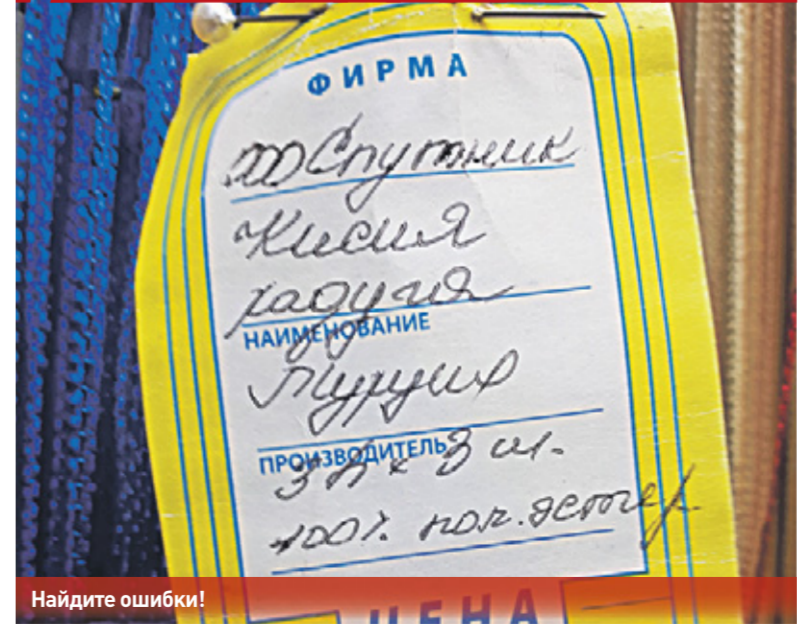 ФИРМА
ООО Спутник
Кисия
радугия
НАИМЕНОВАНИЕ
Турция
ПРОИЗВОДИТЕЛЬ
3 х 3 ш.
100% пол.эстер
ЦЕНА
Найдите ошибки!